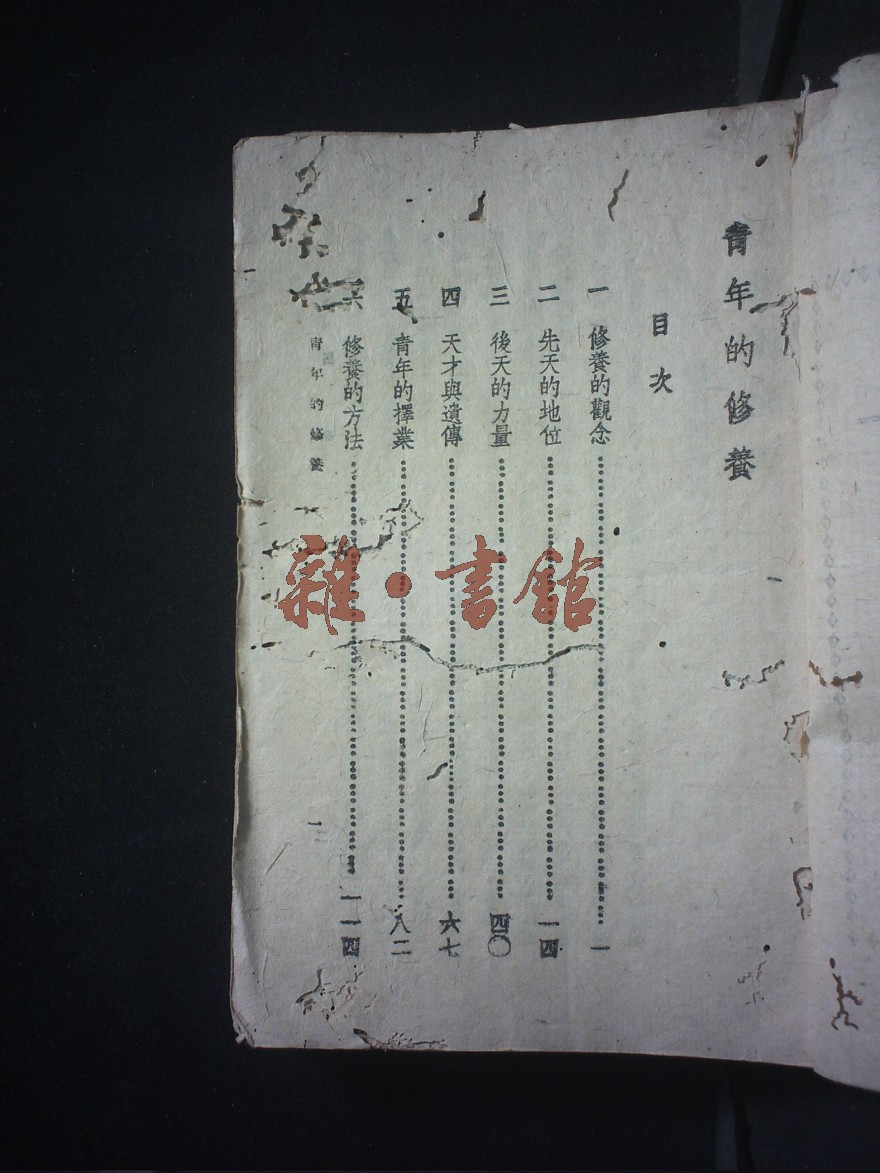 青年的修養
目次
一 修養的觀念 一
二 先天的地位 一四
三 後天的力量 四〇
四 天才與遺傳 六七
五 青年的擇業 八二
六 修養的方法 一一四
青年的修養
一
雜·書館